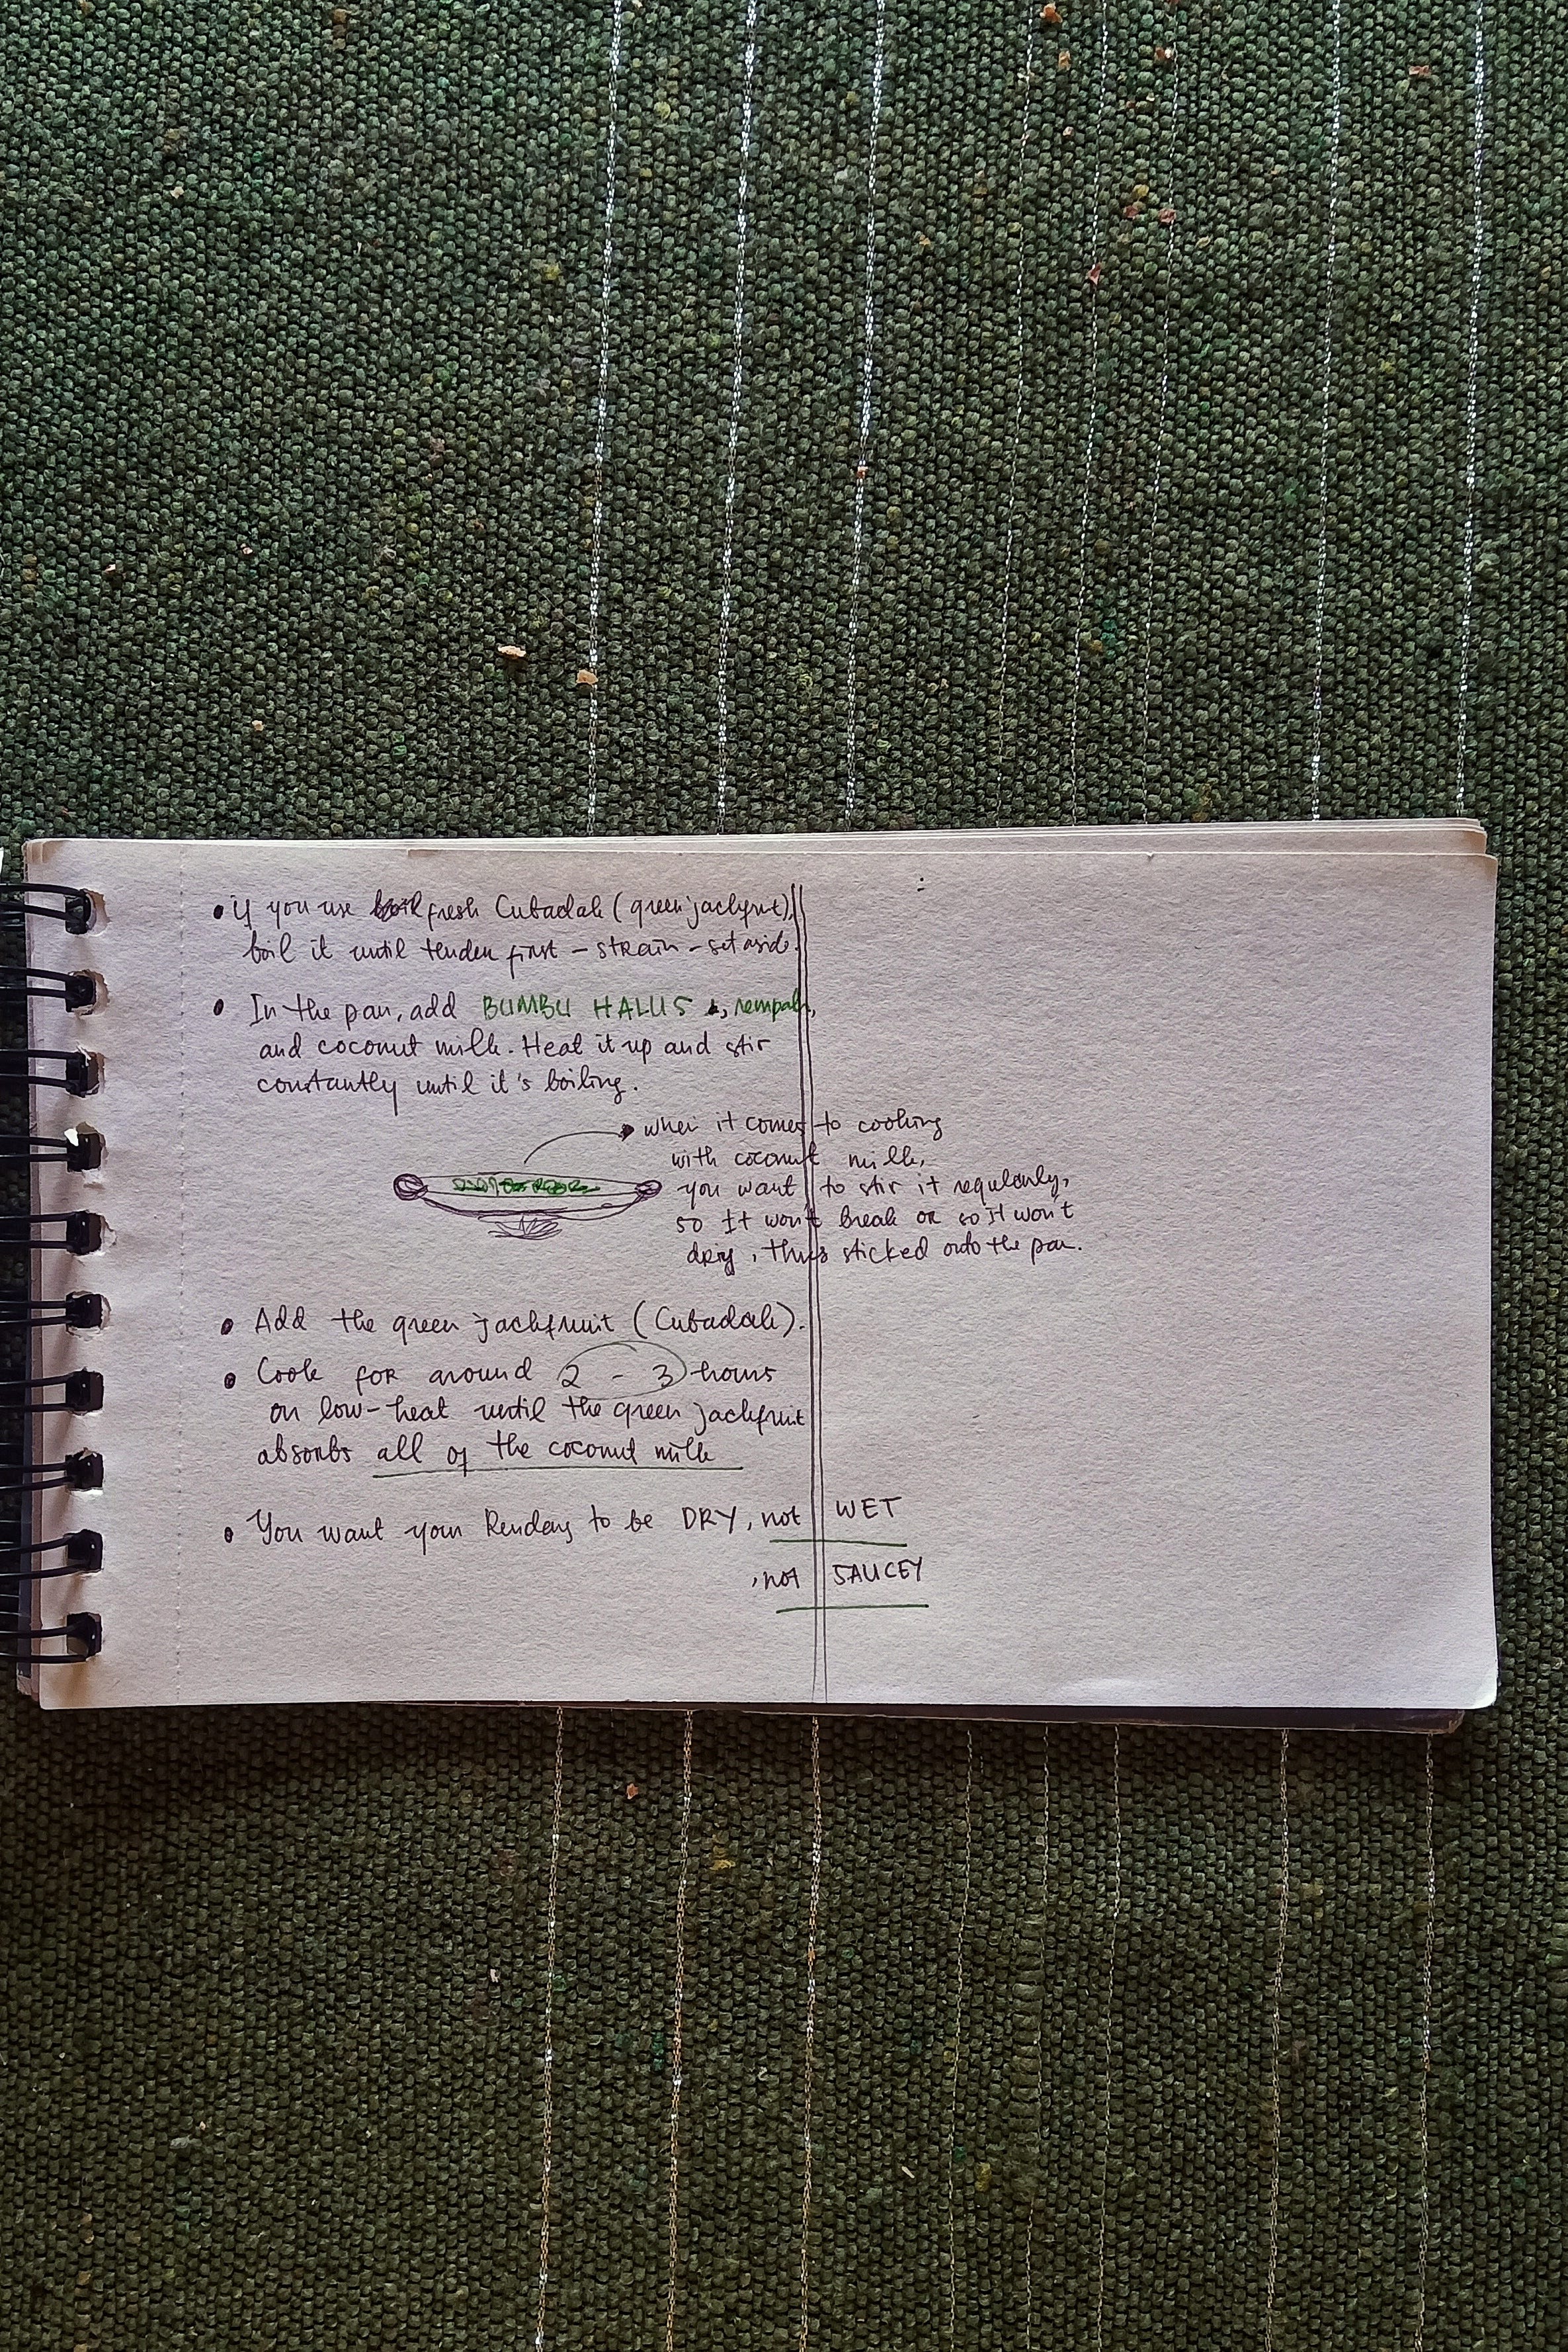 • if you use fresh Cubadak (green jackfruit),
boil it until tender first - strain - set aside.
• In the pan, add BUMBU HALUS, rempah,
and coconut milk. Heat it up and stir
constantly until it's boiling.
when it comes to cooking
with coconut milk,
you want to stir it regularly,
so It won't break or so It won't
dry, thus sticked onto the pan.
• Add the green jackfruit (Cubadak).
• Cook for around 2 - 3 hours
on low-heat until the green jackfruit
absorbs all of the coconut milk
• You want your Rendang to be DRY, not WET
, not SAUCEY